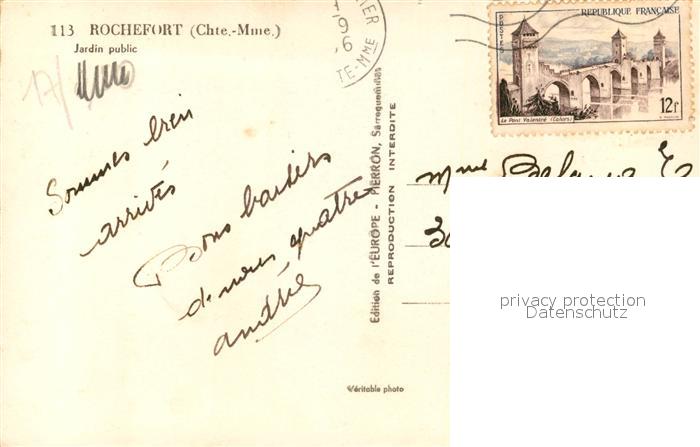 113 ROCHEFORT (Chte.-Mme.)
Jardin public
17/
Sommes bien
arrivés
Bons baisers
de nous quatre
andrée
Edition de l'EUROPE - PIERRON, Sarreguemines
REPRODUCTION INTERDITE
Véritable photo
MER
19
6
TE-MME
POSTES
REPUBLIQUE FRANÇAISE
Le Pont Valentré (Cahors)
12F
Mme
privacy protection
Datenschutz